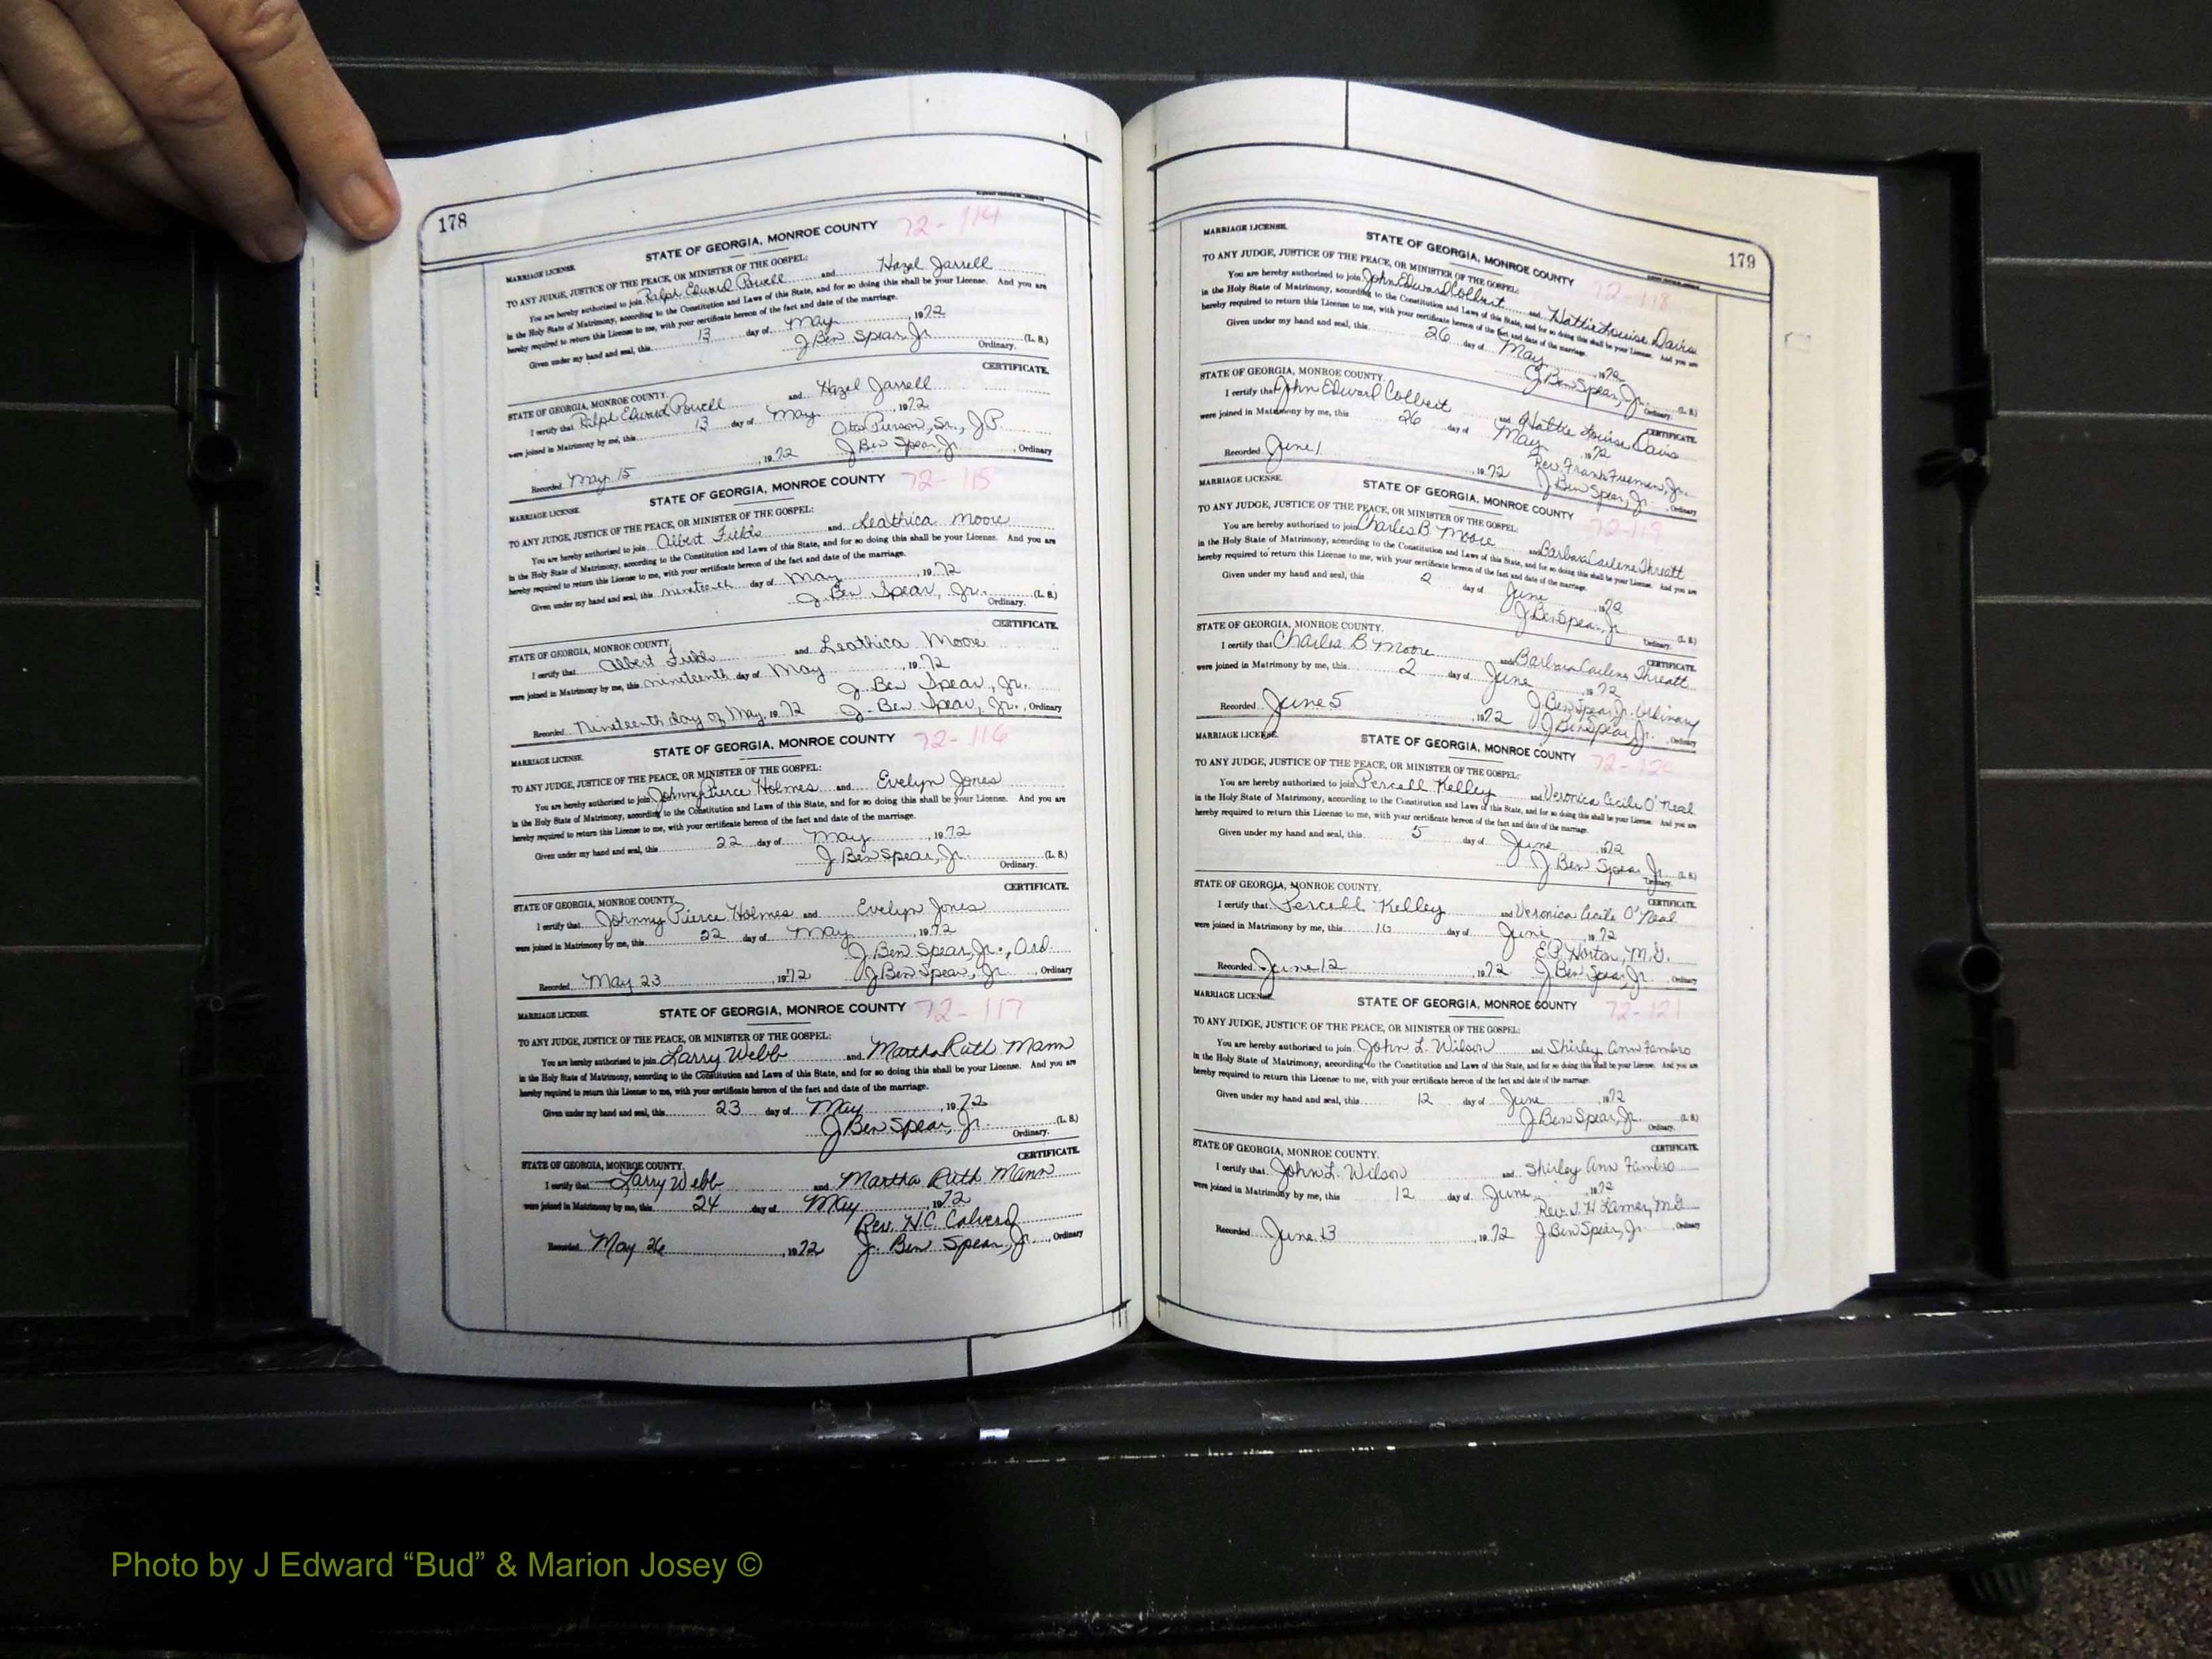 178
STATE OF GEORGIA, MONROE COUNTY 72-114
MARRIAGE LICENSE.
TO ANY JUDGE, JUSTICE OF THE PEACE, OR MINISTER OF THE GOSPEL:
You are hereby authorized to join Ralph Edward Powell and Hazel Jarrell
in the Holy State of Matrimony, according to the Constitution and Laws of this State, and for so doing this shall be your License. And you are
hereby required to return this License to me, with your certificate hereon of the fact and date of the marriage.
Given under my hand and seal, this 13 day of May, 1972
J Ben Spear, Jr. (L. S.)
Ordinary.
CERTIFICATE.
STATE OF GEORGIA, MONROE COUNTY.
I certify that Ralph Edward Powell and Hazel Jarrell
were joined in Matrimony by me, this 13 day of May, 1972
Otto Pierson, Sr., J.P.
Recorded May 15, 1972 J Ben Spear, Jr., Ordinary
STATE OF GEORGIA, MONROE COUNTY 72-115
MARRIAGE LICENSE.
TO ANY JUDGE, JUSTICE OF THE PEACE, OR MINISTER OF THE GOSPEL:
You are hereby authorized to join Albert Fields and Leathica Moore
in the Holy State of Matrimony, according to the Constitution and Laws of this State, and for so doing this shall be your License. And you are
hereby required to return this License to me, with your certificate hereon of the fact and date of the marriage.
Given under my hand and seal, this nineteenth day of May, 1972
J. Ben Spear, Jr. (L. S.)
Ordinary.
CERTIFICATE.
STATE OF GEORGIA, MONROE COUNTY.
I certify that Albert Fields and Leathica Moore
were joined in Matrimony by me, this nineteenth day of May, 1972
J. Ben Spear, Jr.
Recorded Nineteenth day of May, 1972 J. Ben Spear, Jr., Ordinary
STATE OF GEORGIA, MONROE COUNTY 72-116
MARRIAGE LICENSE.
TO ANY JUDGE, JUSTICE OF THE PEACE, OR MINISTER OF THE GOSPEL:
You are hereby authorized to join Johnny Pierce Holmes and Evelyn Jones
in the Holy State of Matrimony, according to the Constitution and Laws of this State, and for so doing this shall be your License. And you are
hereby required to return this License to me, with your certificate hereon of the fact and date of the marriage.
Given under my hand and seal, this 22 day of May, 1972
J Ben Spear, Jr. (L. S.)
Ordinary.
CERTIFICATE.
STATE OF GEORGIA, MONROE COUNTY.
I certify that Johnny Pierce Holmes and Evelyn Jones
were joined in Matrimony by me, this 22 day of May, 1972
J Ben Spear, Jr., Ord.
Recorded May 23, 1972 J Ben Spear, Jr., Ordinary
STATE OF GEORGIA, MONROE COUNTY 72-117
MARRIAGE LICENSE.
TO ANY JUDGE, JUSTICE OF THE PEACE, OR MINISTER OF THE GOSPEL:
You are hereby authorized to join Larry Webb and Martha Ruth Mann
in the Holy State of Matrimony, according to the Constitution and Laws of this State, and for so doing this shall be your License. And you are
hereby required to return this License to me, with your certificate hereon of the fact and date of the marriage.
Given under my hand and seal, this 23 day of May, 1972
J Ben Spear, Jr. (L. S.)
Ordinary.
CERTIFICATE.
STATE OF GEORGIA, MONROE COUNTY.
I certify that Larry Webb and Martha Ruth Mann
were joined in Matrimony by me, this 24 day of May, 1972
Rev. H.C.
Recorded May 26, 1972 J. Ben Spear, Jr., Ordinary
179
MARRIAGE LICENSE.
STATE OF GEORGIA, MONROE COUNTY 72-118
TO ANY JUDGE, JUSTICE OF THE PEACE, OR MINISTER OF THE GOSPEL:
You are hereby authorized to join John Edward Colbert and Hattie Louise Davis
in the Holy State of Matrimony, according to the Constitution and Laws of this State, and for so doing this shall be your License. And you are
hereby required to return this License to me, with your certificate hereon of the fact and date of the marriage.
Given under my hand and seal, this 26 day of May, 1972
J Ben Spear, Jr. (L. S.)
Ordinary.
CERTIFICATE.
STATE OF GEORGIA, MONROE COUNTY.
I certify that John Edward Colbert and Hattie Louise Davis
were joined in Matrimony by me, this 26 day of May, 1972
Rev. Frank Freeman, Jr.
Recorded June 1, 1972 J Ben Spear, Jr., Ordinary
MARRIAGE LICENSE.
STATE OF GEORGIA, MONROE COUNTY 72-119
TO ANY JUDGE, JUSTICE OF THE PEACE, OR MINISTER OF THE GOSPEL:
You are hereby authorized to join Charles B Moore and Barbara Carlene Threatt
in the Holy State of Matrimony, according to the Constitution and Laws of this State, and for so doing this shall be your License. And you are
hereby required to return this License to me, with your certificate hereon of the fact and date of the marriage.
Given under my hand and seal, this 2 day of June, 1972
J Ben Spear, Jr. (L. S.)
Ordinary.
CERTIFICATE.
STATE OF GEORGIA, MONROE COUNTY.
I certify that Charles B Moore and Barbara Carlene Threatt
were joined in Matrimony by me, this 2 day of June, 1972
J Ben Spear, Jr. Ordinary
Recorded June 5, 1972 J Ben Spear, Jr., Ordinary
MARRIAGE LICENSE.
STATE OF GEORGIA, MONROE COUNTY 72-120
TO ANY JUDGE, JUSTICE OF THE PEACE, OR MINISTER OF THE GOSPEL:
You are hereby authorized to join Percell Kelley and Veronica Cecile O'Neal
in the Holy State of Matrimony, according to the Constitution and Laws of this State, and for so doing this shall be your License. And you are
hereby required to return this License to me, with your certificate hereon of the fact and date of the marriage.
Given under my hand and seal, this 5 day of June, 1972
J Ben Spear Jr. (L. S.)
Ordinary.
CERTIFICATE.
STATE OF GEORGIA, MONROE COUNTY.
I certify that Percell Kelley and Veronica Cecile O'Neal
were joined in Matrimony by me, this 10 day of June, 1972
E.P. Horton, M.G.
Recorded June 12, 1972 J Ben Spear, Jr. Ordinary
MARRIAGE LICENSE.
STATE OF GEORGIA, MONROE COUNTY 72-121
TO ANY JUDGE, JUSTICE OF THE PEACE, OR MINISTER OF THE GOSPEL:
You are hereby authorized to join John L. Wilson and Shirley Ann Fambro
in the Holy State of Matrimony, according to the Constitution and Laws of this State, and for so doing this shall be your License. And you are
hereby required to return this License to me, with your certificate hereon of the fact and date of the marriage.
Given under my hand and seal, this 12 day of June, 1972
J Ben Spear, Jr. (L. S.)
Ordinary.
CERTIFICATE.
STATE OF GEORGIA, MONROE COUNTY.
I certify that John L. Wilson and Shirley Ann Fambro
were joined in Matrimony by me, this 12 day of June, 1972
Rev. J. H. Lamar, M.G
Recorded June 13, 1972 J Ben Spear, Jr., Ordinary
Photo by J Edward “Bud” & Marion Josey ©